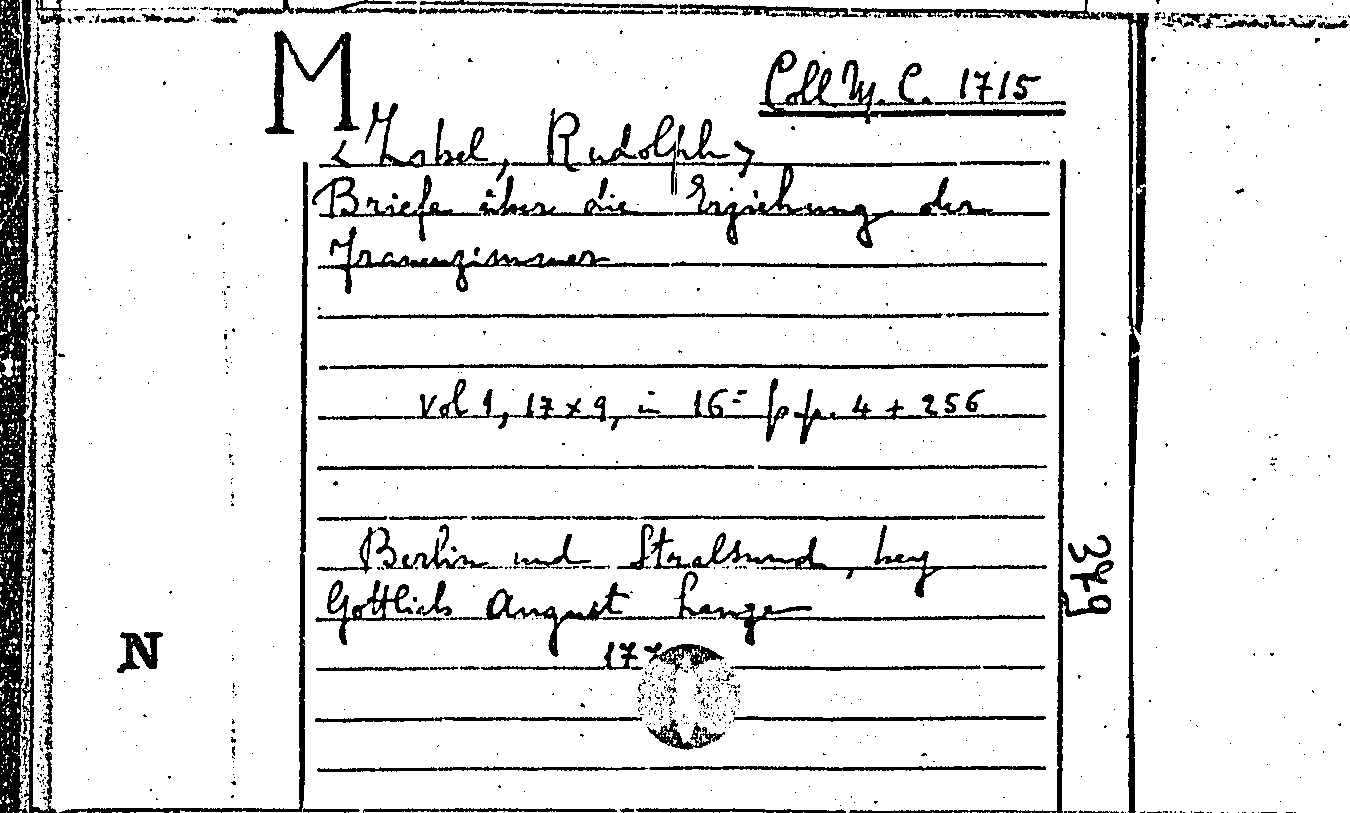 M
Coll M. C. 1715
<Zobel, Rudolph>
Briefe über die Erziehung der
Frauenzimmer
vol 1, 17 x 9, in 16= pp. 4 + 256
Berlin und Stralsund, bey
Gottlieb August Lange
177
N